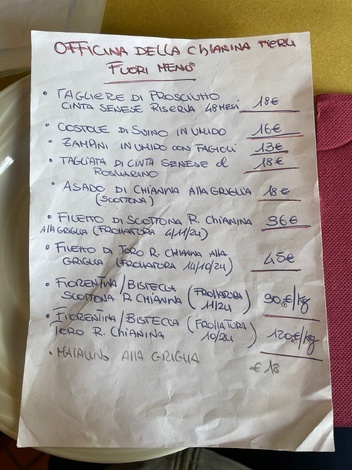 OFFICINA DELLA CHIANINA MERÙ
FUORI MENÙ
• TAGLIERE DI PROSCIUTTO
CINTA SENESE RISERVA 48 MESI 18€
• COSTOLE DI SUINO IN UMIDO 16€
• ZAMPINI IN UMIDO CON FAGIOLI 13€
• TAGLIATA DI CINTA SENESE al 18€
ROSMARINO
• ASADO DI CHIANINA ALLA GRIGLIA 18€
(SCOTTONA)
• FILETTO DI SCOTTONA R. CHIANINA 36€
ALLA GRIGLIA (FROLLATURA 4/11/24)
• FILETTO DI TORO R. CHIANINA ALLA 45€
GRIGLIA (FROLLATURA 14/10/24)
• FIORENTINA/BISTECCA (FROLLATURA
SCOTTONA R. CHIANINA 11/24) 90,€/kg
• FIORENTINA/BISTECCA (FROLLATURA
TORO R. CHIANINA 10/24) 120,€/kg
• MAIALINO ALLA GRIGLIA
€ 18